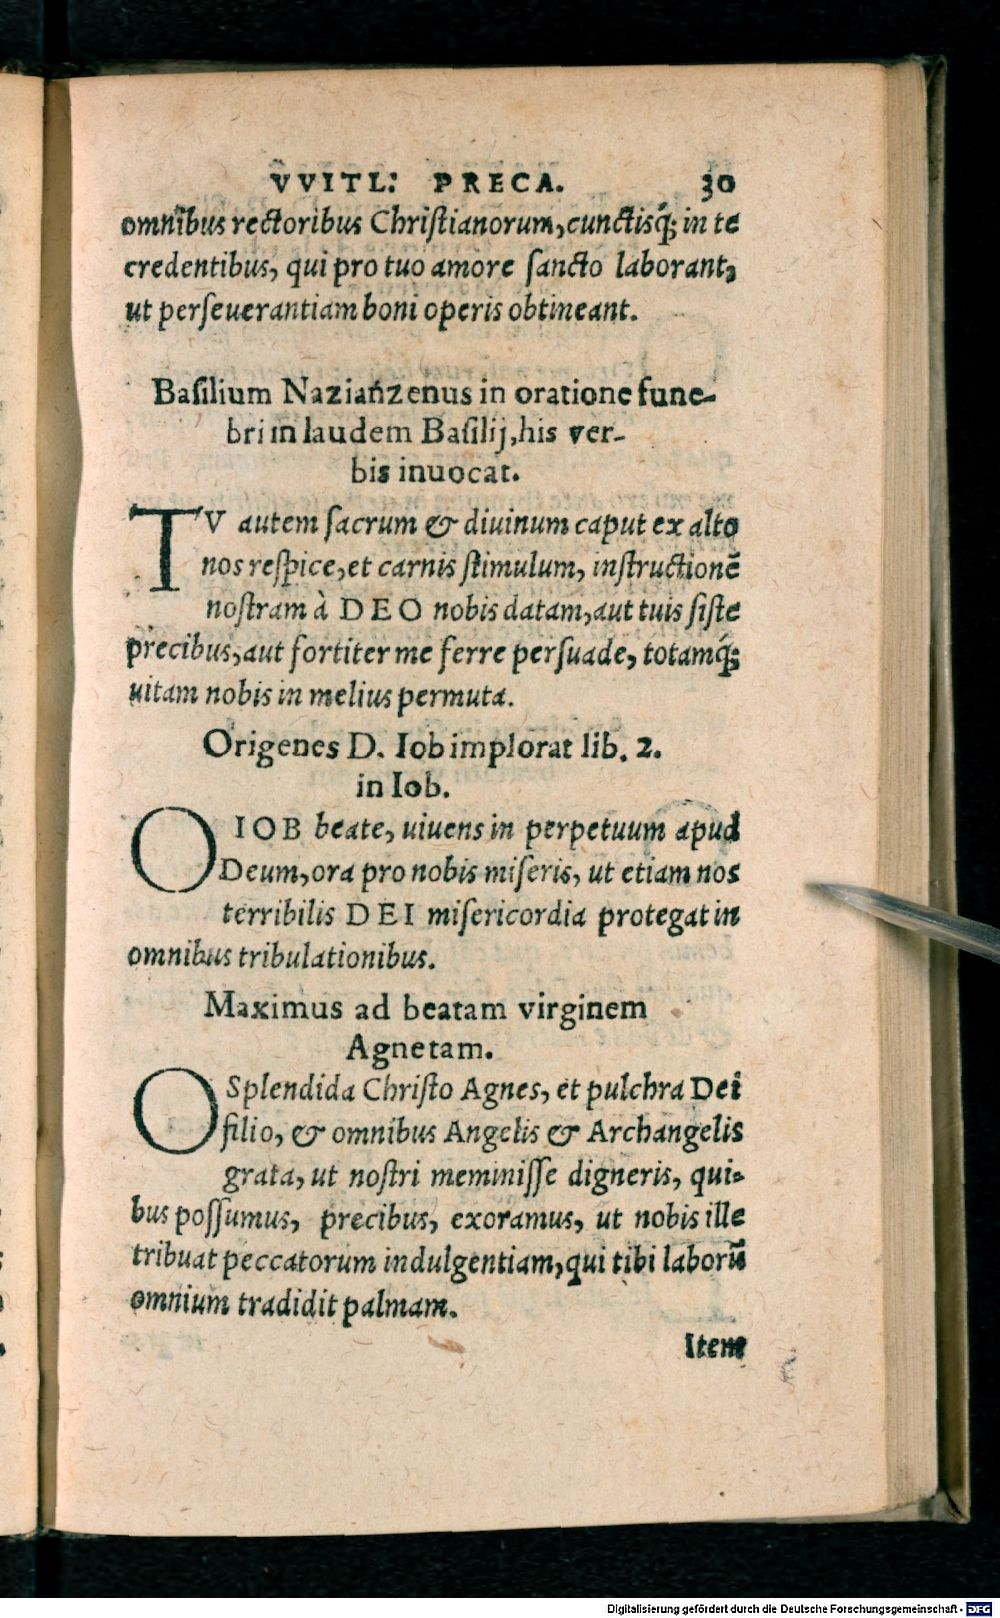 VVITL: PRECA. 30
omnibus rectoribus Chriſtianorum, cunctisq́; in te
credentibus, qui pro tuo amore ſancto laborant,
ut perſeuerantiam boni operis obtineant.
Baſilium Nazianzenus in oratione fune-
bri in laudem Baſilij, his ver-
bis inuocat.
TV autem ſacrum & diuinum caput ex alto
nos reſpice, et carnis ſtimulum, inſtructionē
noſtram à DEO nobis datam, aut tuis ſiſte
precibus, aut fortiter me ferre perſuade, totamq́;
uitam nobis in melius permuta.
Origenes D. Iob implorat lib. 2.
in Iob.
O IOB beate, uiuens in perpetuum apud
Deum, ora pro nobis miſeris, ut etiam nos
terribilis DEI miſericordia protegat in
omnibus tribulationibus.
Maximus ad beatam virginem
Agnetam.
O Splendida Chriſto Agnes, et pulchra Dei
filio, & omnibus Angelis & Archangelis
grata, ut noſtri meminiſſe digneris, qui-
bus poſſumus, precibus, exoramus, ut nobis ille
tribuat peccatorum indulgentiam, qui tibi laborū
omnium tradidit palmam.
Item
Digitalisierung gefördert durch die Deutsche Forschungsgemeinschaft - DFG